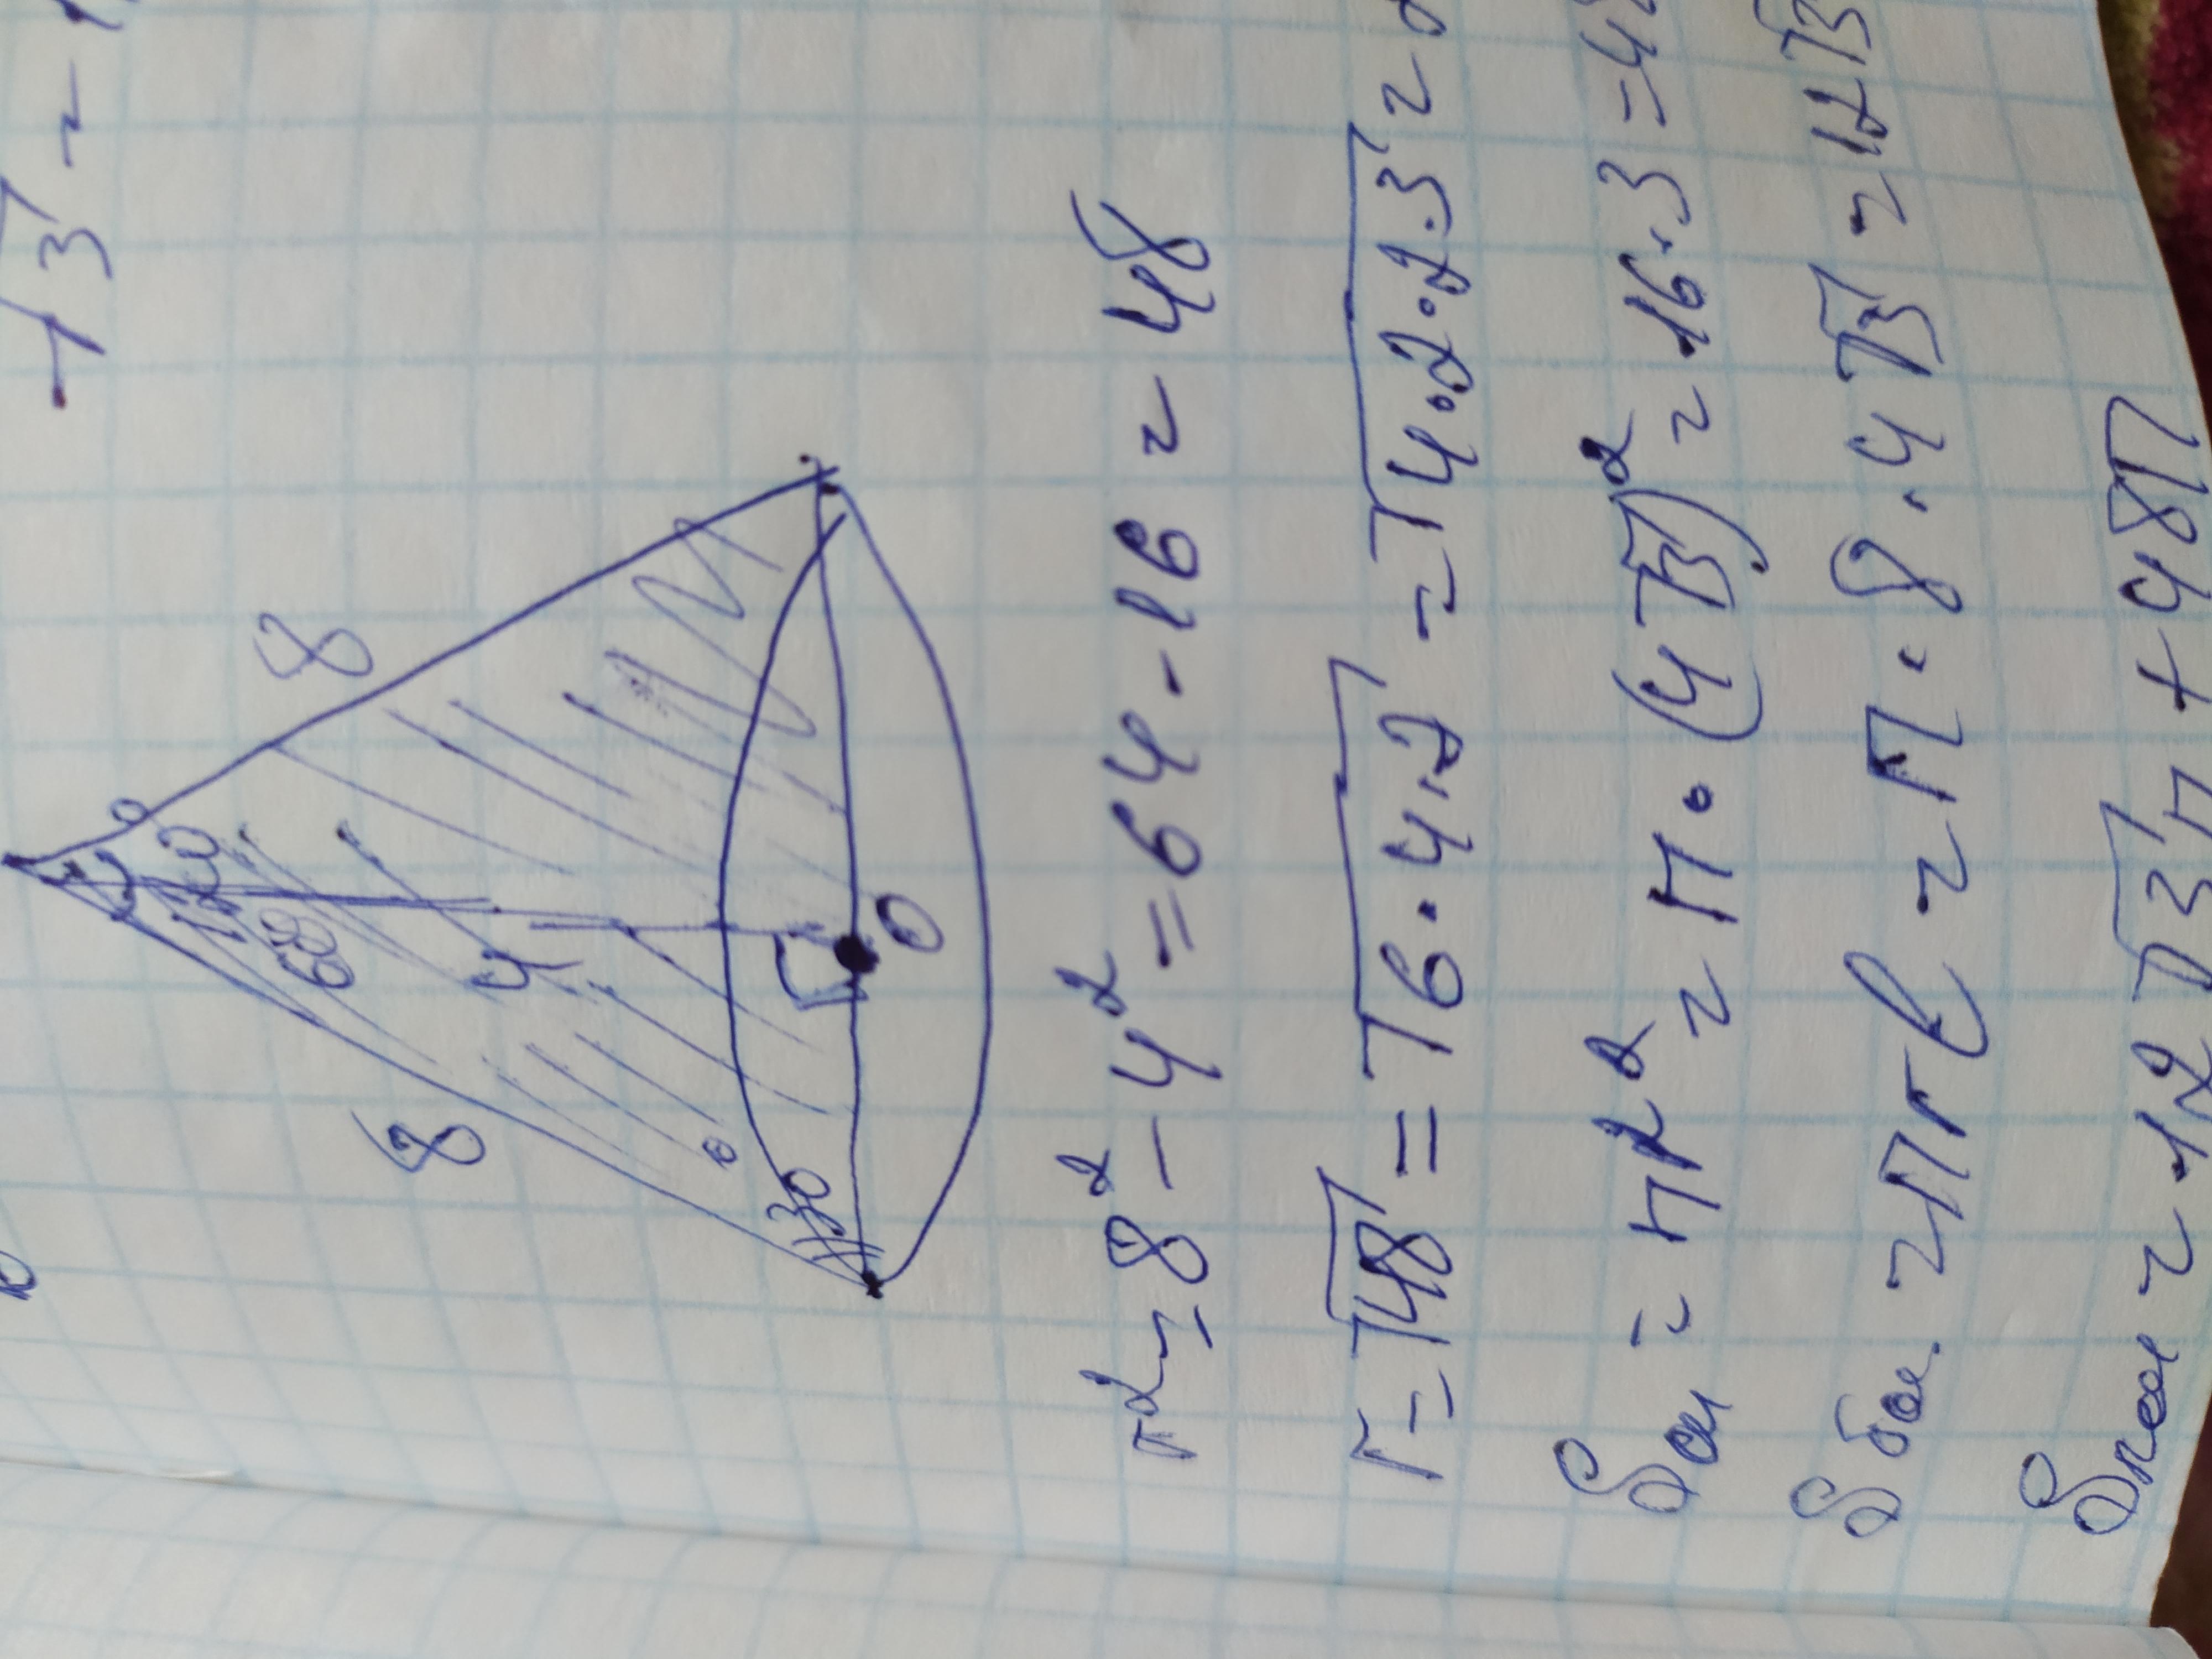 √3 =
8
120°
60
8
4
30°
O
r² = 8² - 4² = 64 - 16 = 48
r = √48 = √6·4·2 = √4·2·2·3 =
Sосн = πr² = π·(4√3)² = 16·3 = 4
Sбок = πrl = π·8·4√3 = 12√3
Sпол = 12√3π + 48π